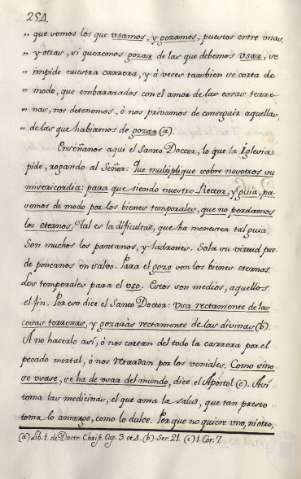 254.
" que vemos los que usamos, y gozamos, puestos entre unas,
" y otras, si queremos gozar de las que debemos usar, se
" impide nuestra carrera, y à veces tambien se corta de
" modo, que embarazados con el amor de las cosas terre-
" nas, nos detenemos, ò nos privamos de conseguir aquellas
" de las que habiamos de gozar (a).
Enseñanos aqui el Santo Doctor, lo que la Iglesia
pide, rogando al Señor: Que multiplique sobre nosotros su
misericordia: para que siendo nuestro Rector, y guia, pa-
semos de modo por los bienes temporales, que no perdamos
los eternos. Tal es la dificultad, que ha menester tal guia.
Son muchos los pantanos, y ladrones. Sola su virtud pue-
de ponernos en salvo. Para el gozo son los bienes eternos
dos temporales para el uso. Estos son medios, aquellos
el fin. Por eso dice el Santo Doctor: Usa rectamente de las
cosas terrenas, y gozaràs rectamente de las divinas (b).
A no hacerlo asi, ò nos caeren del todo la carrera por el
pecado mortal, ò nos retardan por los veniales. Como vino
se vierte, se ha de usar del mundo, dice el Apostol (c). Asi
toma las medicinas, el que ama la salud, que tan presto
toma lo amargo, como lo dulce. Porque no quiere uno, ni otro,
(a) Lib. 1. de Doctr. Christ. Cap. 3. et 4. (b) Ser. 21. (c) 1. Cor. 7.